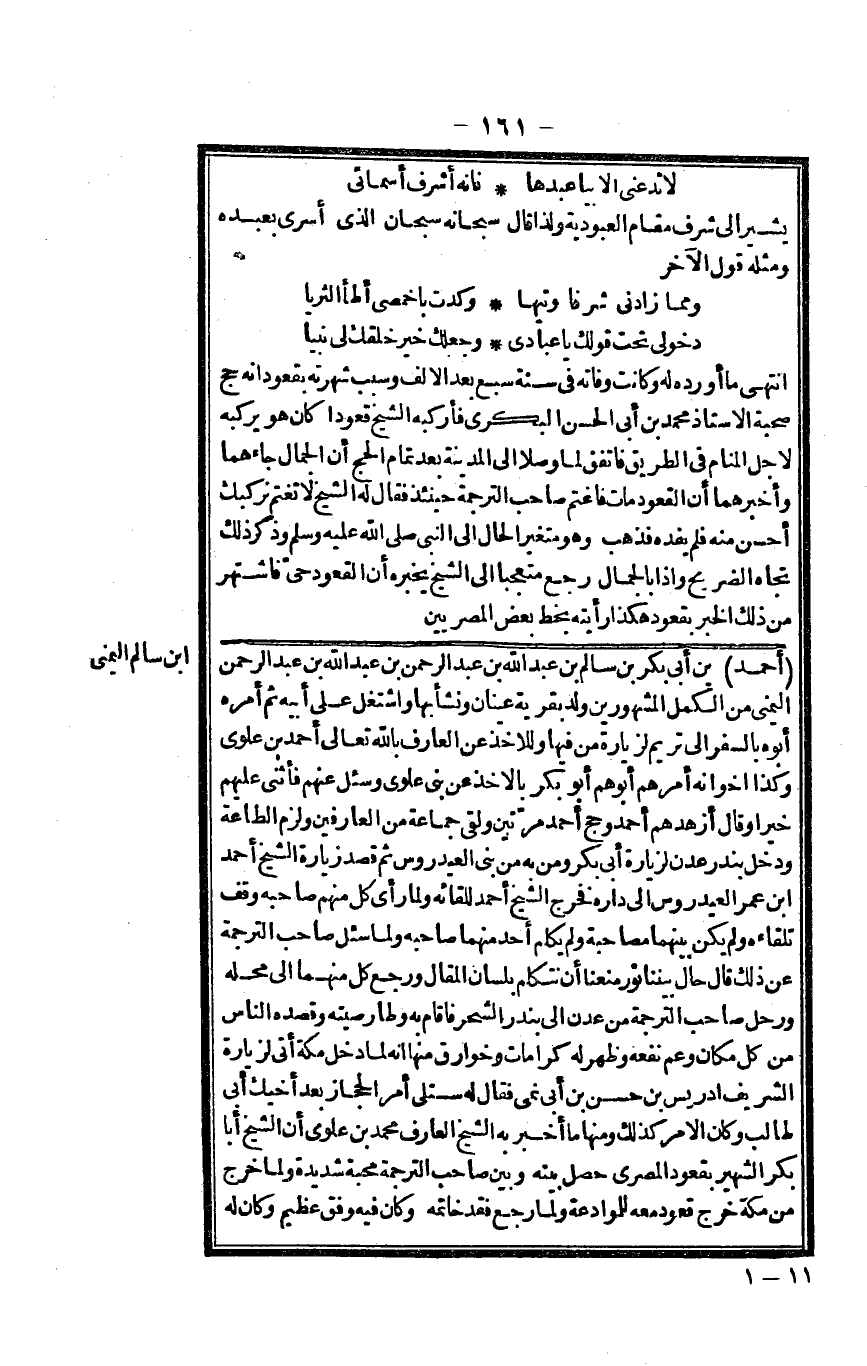 - ١٦١ -
لا تدعنى الا بيا عبدها * فانه أشرف أسمائى
يشير الى شرف مقام العبودية ولذا قال سبحانه سبحان الذى أسرى بعبده
ومثله قول الآخر
ومما زادنى شرفا وتيها * وكدت باخمصى أطأ الثريا
دخولى تحت قولك يا عبادى * وجعلك خير خلقك لى نبيا
انتهى ما أورده له وكانت وفاته فى سنة سبع بعد الالف وسبب شهرته بقعود انه حج
صحبة الاستاذ محمد بن أبى الحسن البكرى فأركبه الشيخ قعودا كان هو يركبه
لاجل المنام فى الطريق فاتفق لما وصلا الى المدينة بعد تمام الحج أن الجمال جاءهما
وأخبرهما أن القعود مات فاغتم صاحب الترجمة حينئذ فقال له الشيخ لا تغتم نركبك
أحسن منه فلم يفده فذهب وهو متغير الحال الى النبى صلى الله عليه وسلم وذكر ذلك
تجاه الضريح واذا بالجمال رجع متعجبا الى الشيخ يخبره أن القعود حىّ فاشتهر
من ذلك الخبر بقعود هكذا رأيته بخط بعض المصريين
ابن سالم اليمنى
(أحمد) بن أبى بكر بن سالم بن عبد الله بن عبد الرحمن بن عبد الله بن عبد الرحمن
اليمنى من الكمل المشهورين ولد بقرية عينان ونشأ بها واشتغل على أبيه ثم أمره
أبوه بالسفر الى تريم لزيارة من فيها وللاخذ عن العارف بالله تعالى أحمد بن علوى
وكذا اخوانه أمرهم أبوهم أبو بكر بالاخذ عن بنى علوى وسئل عنهم فأثنى عليهم
خيرا وقال أزهدهم أحمد وحج أحمد مرّتين ولقى جماعة من العارفين ولزم الطاعة
ودخل بندر عدن لزيارة أبى بكر ومن به من بنى العيدروس ثم قصد زيارة الشيخ أحمد
ابن عمر العيدروس الى داره فخرج الشيخ أحمد للقائه ولما رأى كل منهم صاحبه وقف
تلقاءه ولم يكن بينهما مصاحبة ولم يكلم أحد منهما صاحبه ولما سئل صاحب الترجمة
عن ذلك قال حال بيننا نور منعنا أن نتكلم بلسان المقال ورجع كل منهما الى محله
ورحل صاحب الترجمة من عدن الى بندر الشحر فاقام به وطار صيته وقصده الناس
من كل مكان وعم نفعه وظهر له كرامات وخوارق منها انه لما دخل مكة أتى لزيارة
الشريف ادريس بن حسن بن أبى نمى فقال له ستلى أمر الحجاز بعد أخيك أبى
طالب وكان الامر كذلك ومنها ما أخبر به الشيخ العارف محمد بن علوى أن الشيخ أبا
بكر الشهير بقعود المصرى حصل بينه وبين صاحب الترجمة محبة شديدة ولما خرج
من مكة خرج قعود معه للموادعة ولما رجع فقد خاتمه وكان فيه وفق عظيم وكان له
١١ - ١